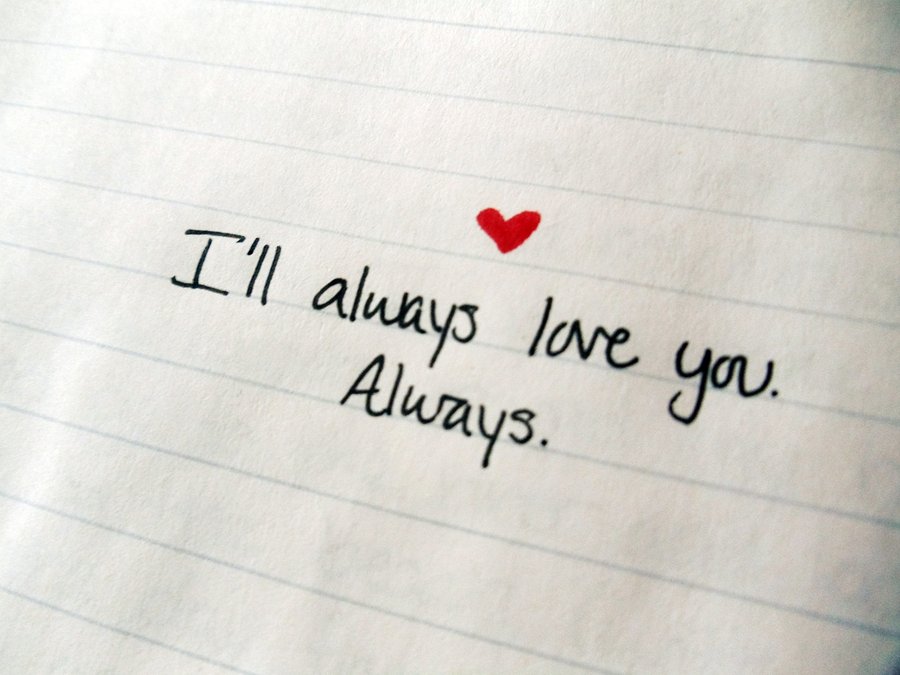 I'll always love you.
Always.